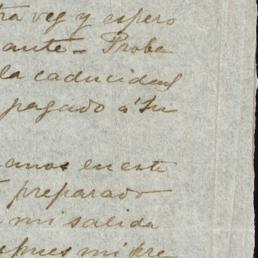 tra vez y espero
ante - Proba
la caducidad
pagado á su
anos en este
preparado
mi salida
spues mi pre